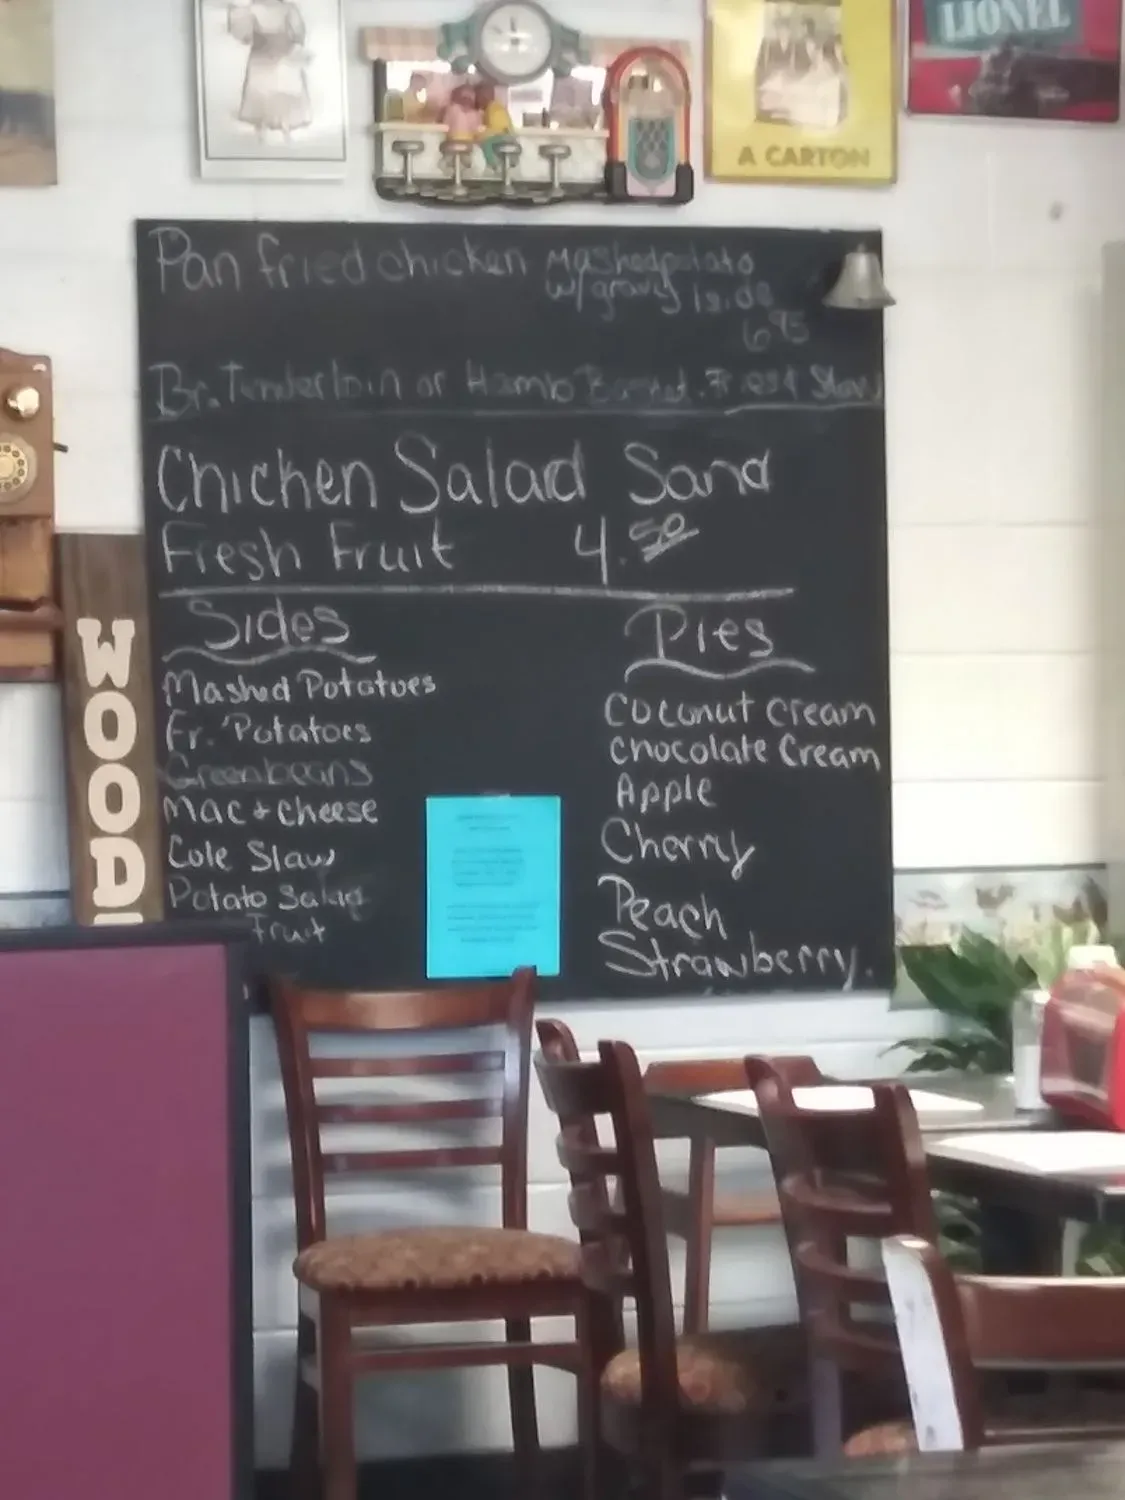 LIONEL
A CARTON
Pan fried chicken Mashed potato
w/gravy 1 side
6.95
Br. Tenderloin or Hamb Basket. Fr est Slaw
Chicken Salad Sand
Fresh Fruit 4.50
Sides
Mashed Potatoes
Fr. Potatoes
Greenbeans
Mac + cheese
Cole Slaw
Potato Salad
Fruit
Pies
Coconut Cream
Chocolate Cream
Apple
Cherry
Peach
Strawberry.
WOOD